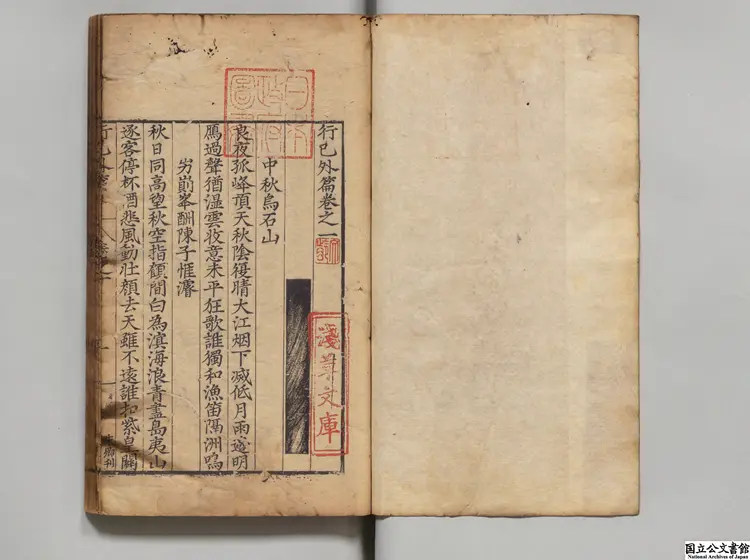 行己外篇卷之一
中秋烏石山
良夜孤峰頂天秋陰復晴大江烟下滅低月雨邊明
鴈過聲猶溼雲收意未平狂歌誰獨和漁笛隔洲鳴
屴崱峯酬陳子惟濬
秋日同高望秋空指顧間白為滇海浪青盡島夷山
逐客停杯酒悲風動壯顏去天雖不遠誰扣紫皇關
行己外篇
刊
日本政府圖書
淺草文庫
国立公文書館
National Archives of Japan